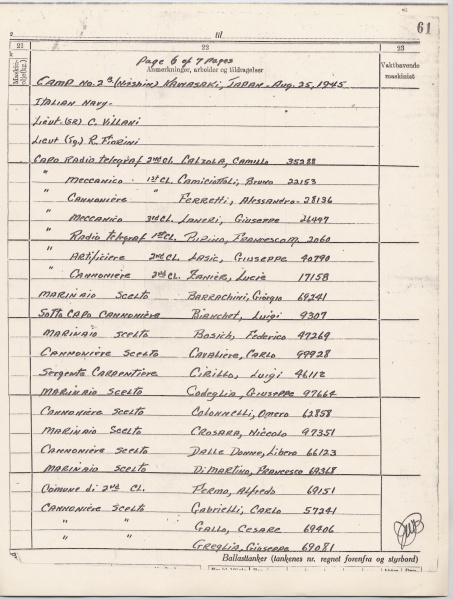 61
til
21 22 23
Page 6 of 7 Pages
Anmerkninger, arbeider og tildragelser
Vakthavende maskinist
Camp No. 2B (Nisshin) Kawasaki, Japan - Aug. 25, 1945
Italian Navy -
Lieut. (SR) C. Villani
Lieut (Jg.) R. Fiorini
Capo Radio telegraf 2nd Cl. Calzola, Camillo 35288
" Meccanico 1st Cl. Camiciottoli, Bruno 22153
" Cannonière " Ferretti, Alessandro - 28136
" Meccanico 3rd Cl. Laneri, Giuseppe 26447
" Radio telegraf 1st Cl. Francesco M. 2060
" Artificiere 2nd Cl. Lasic, Giuseppe 40790
" Cannonière 2nd Cl. Zanière, Lucio 17158
Marinaio Scelto Barrachini, Giorgio 69241
Sotto Capo Cannonière Bianchet, Luigi 9307
Marinaio Scelto Bosich, Federico 47269
Cannonière Scelto Cavalière, Carlo 99928
Sergente Carpentière Cirillo, Luigi 46112
Marinaio Scelto Codeglia, Giuseppe 97664
Cannonière Scelto Colonnelli, Omero 62858
Marinaio Scelto Crosara, Niccolo 97351
Cannonière Scelto Dalle Donne, Libero 66123
Marinaio Scelto Di Martino, Francesco 69368
Comune di 2nd Cl. Fermo, Alfredo 69151
Cannonière Scelto Gabrielli, Carlo 57241
" " Gallo, Cesare 69406
" " Greglia, Giuseppe 69081
Ballasttanker (tankenes nr. regnet forenfra og styrbord)